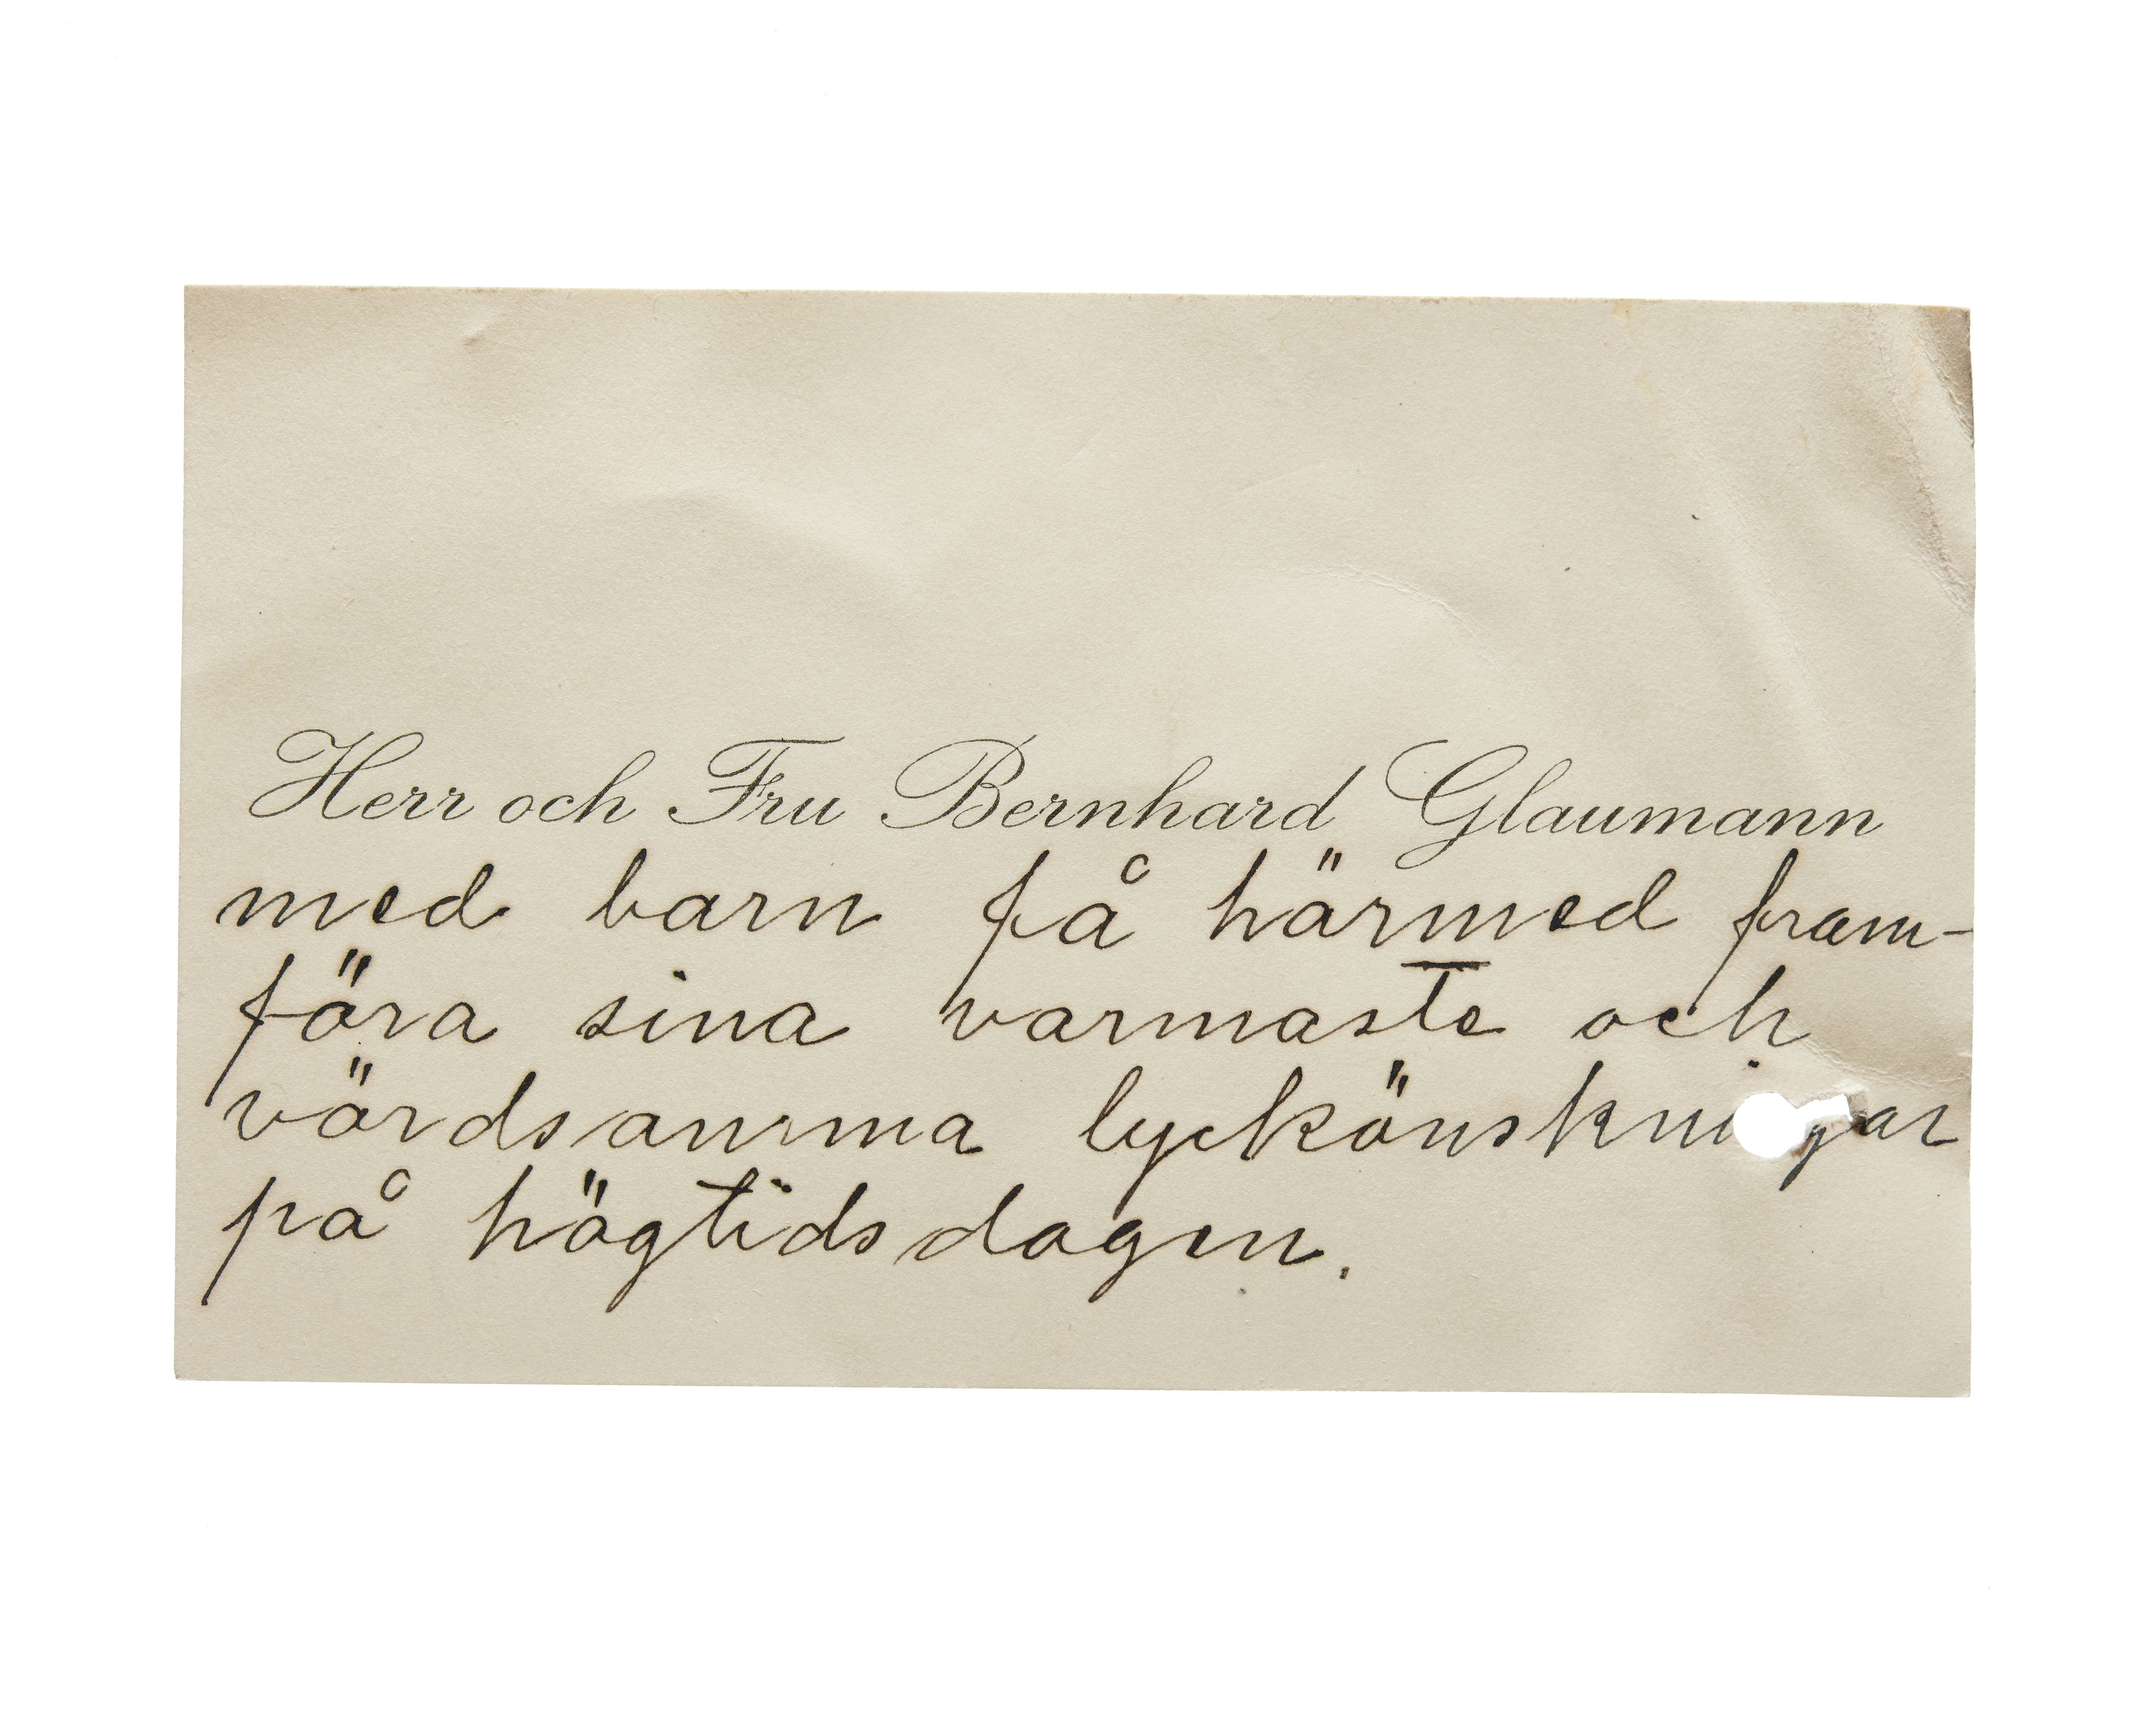 Herr och Fru Bernhard Glaumann
med barn få härmed fram-
föra sina varmaste och
vördsamma lyckönskningar
på högtidsdagen.